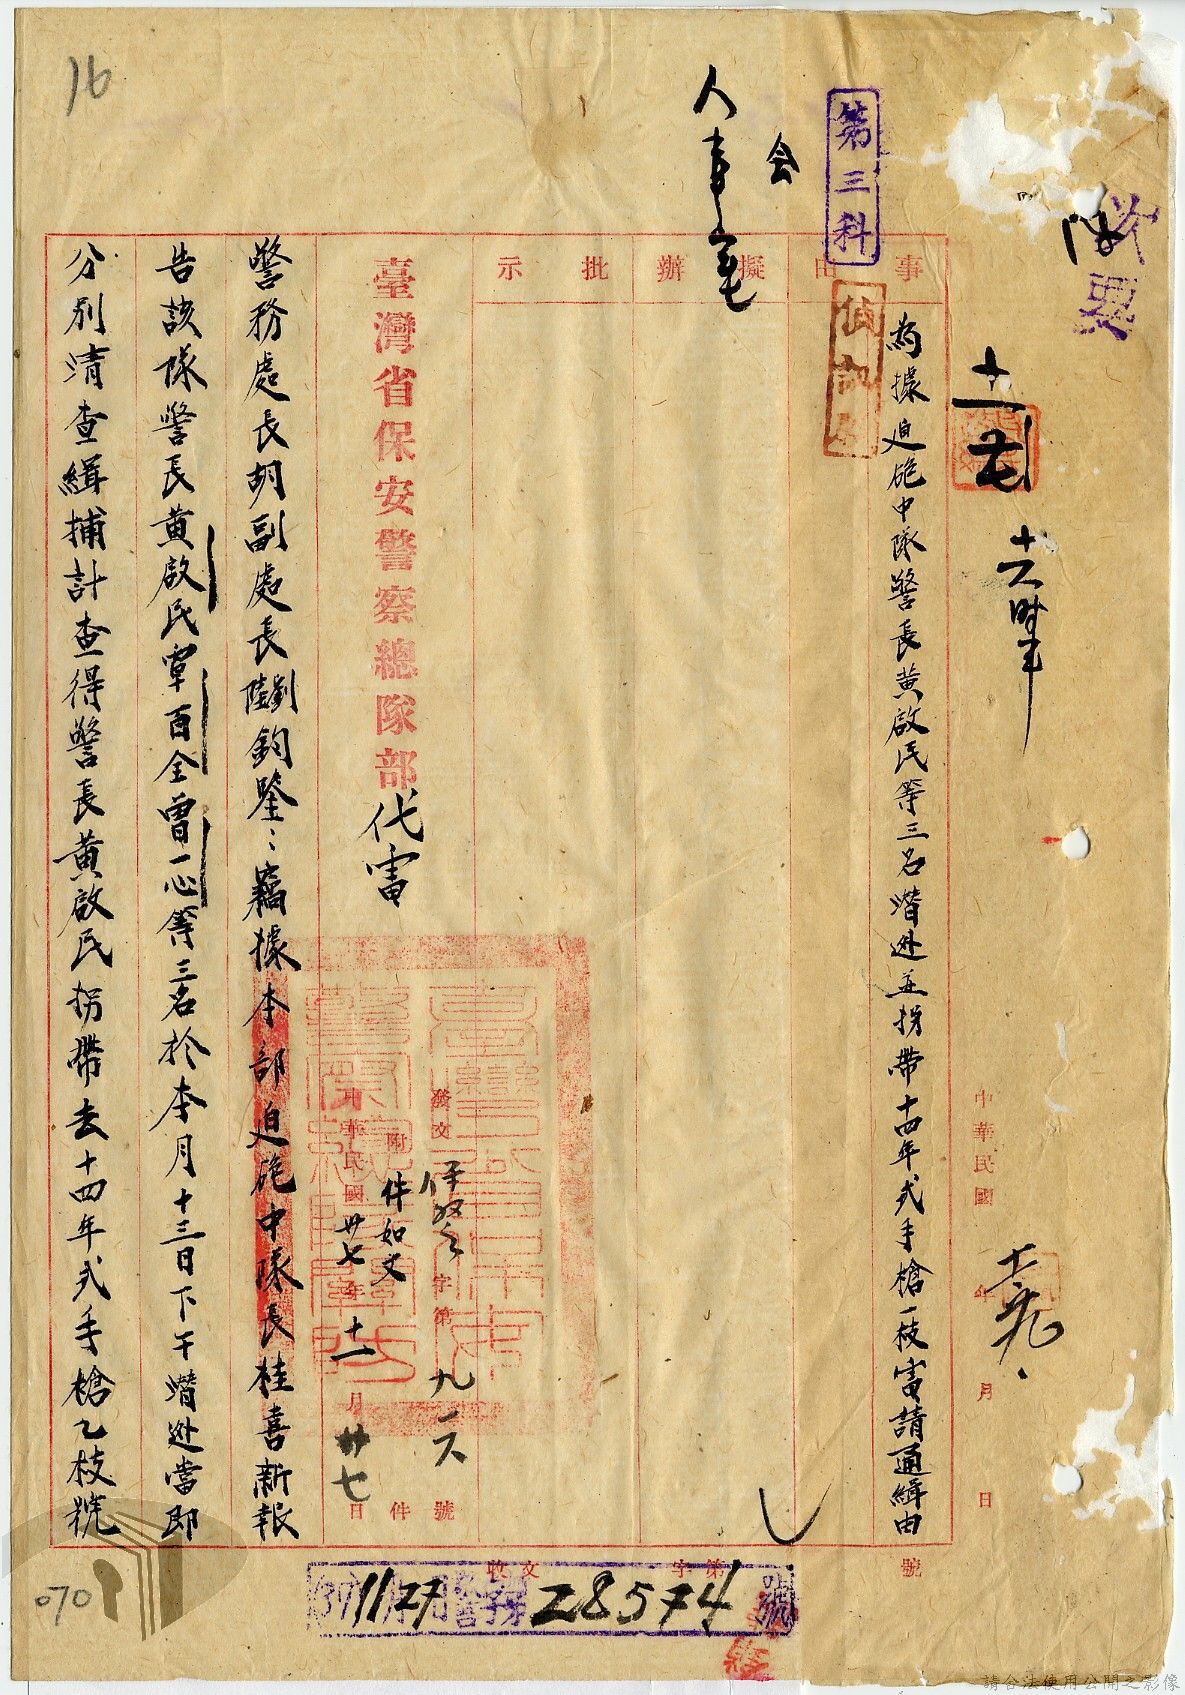 16
人事室
会
第三科
事由
擬辦
批示
為據迫砲中隊警長黃啟民等三名潛逃並拐帶十四年式手槍一枝電請通緝由
臺灣省保安警察總隊部代電
發文
字第九一六號
附件如文
件
中華民國卅七年十一月廿七日
警務處長胡副處長劉陸鈞鑒：竊據本部迫砲中隊長桂喜新報
告該隊警長黃啟民覃百全曾一心等三名於本月十三日下午潛逃當即
分別清查緝捕計查得警長黃啟民拐帶去十四年式手槍乙枝號
中華民國 年 月 日
收文 字第 號
37 11 27 28574 號
070
請合法使用公開之影像